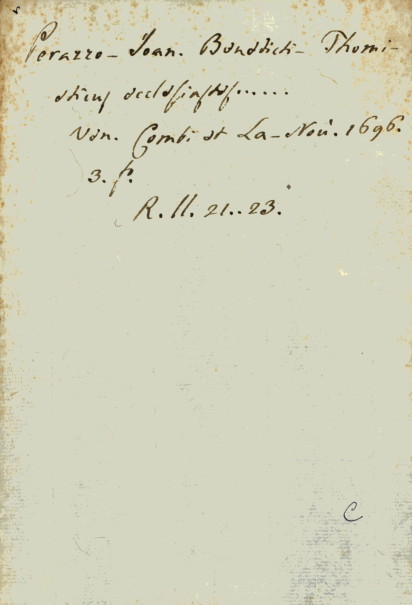 Perazzo - Joan. Benedicti - Thomi-
sticus ecclesiastes......
Ven. Combi et La-Noù. 1696.
3. f.
R. II. 21..23.
C